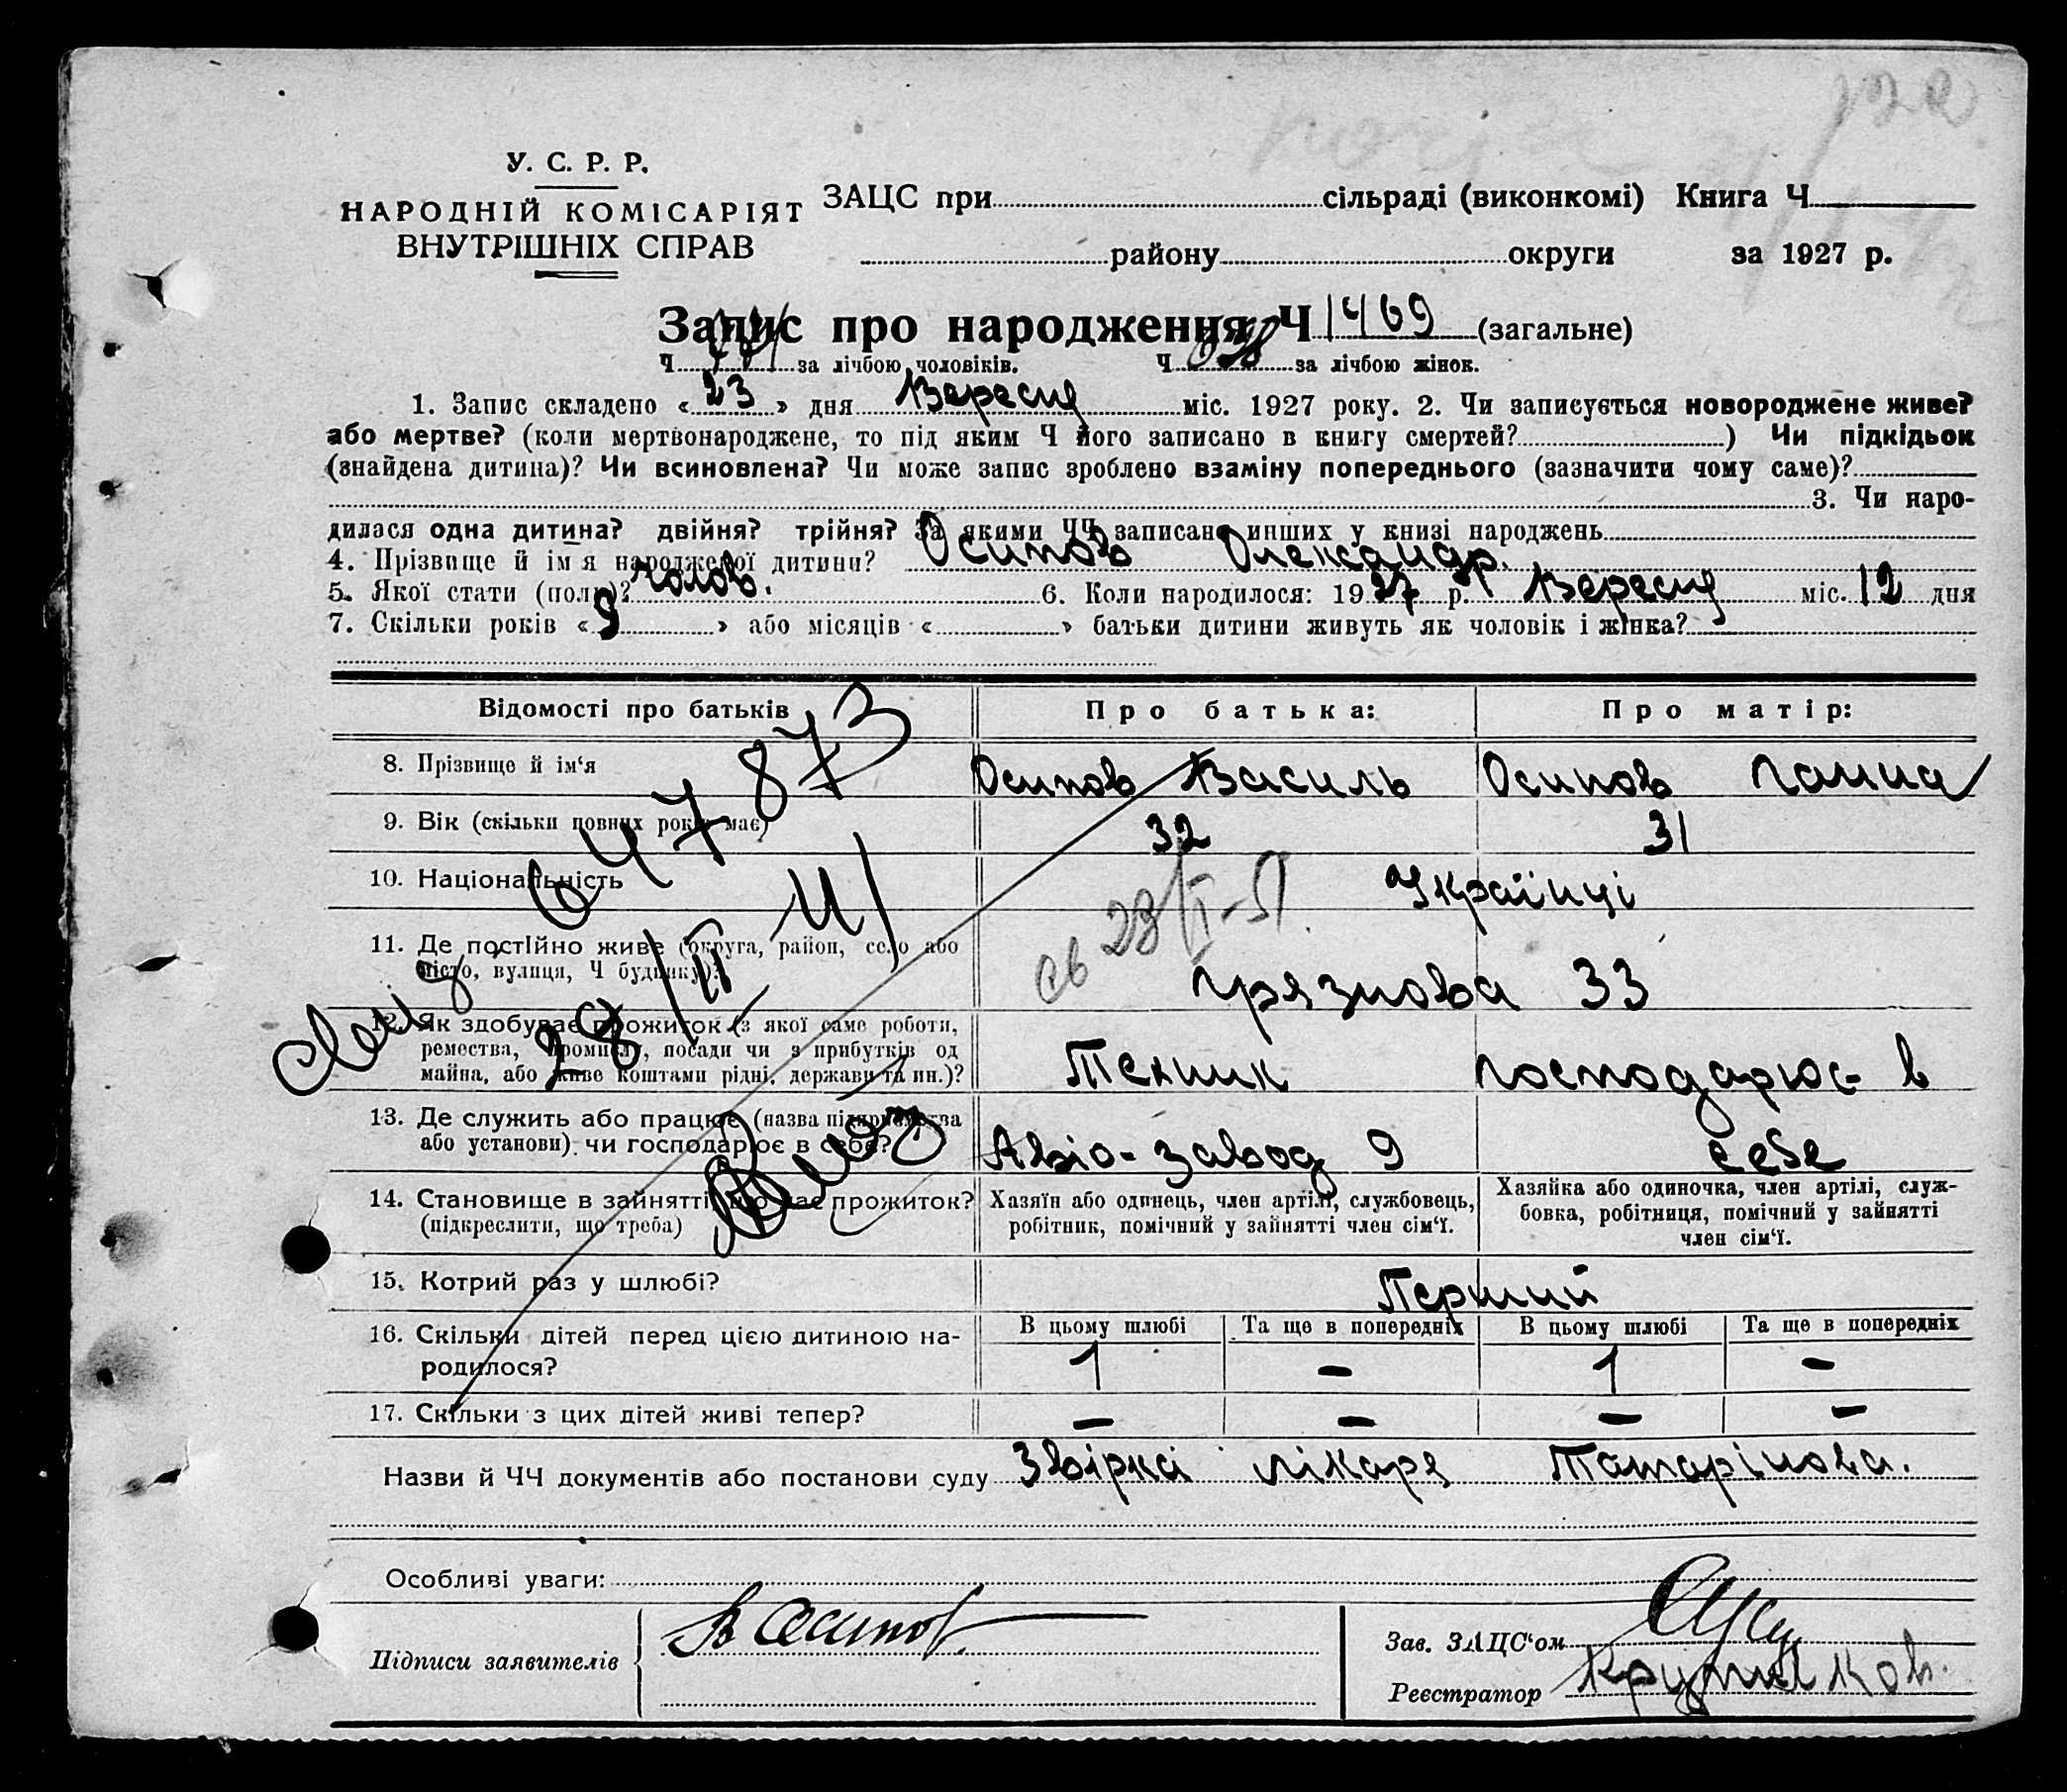 У. С. Р. Р.
НАРОДНІЙ КОМІСАРІЯТ
ВНУТРІШНІХ СПРАВ
ЗАЦС при сільраді (виконкомі) Книга Ч
району округи за 1927 р.
Запис про народження Ч 1469 (загальне)
Ч за лічбою чоловіків. Ч за лічбою жінок.
1. Запис складено «23» дня Вересня міс. 1927 року. 2. Чи записується новороджене живе?
або мертве? (коли мертвонароджене, то під яким Ч його записано в книгу смертей? ) Чи підкідьок
(знайдена дитина)? Чи всиновлена? Чи може запис зроблено взаміну попереднього (зазначити чому саме)?
3. Чи наро-
дилася одна дитина? двійня? трійня? За якими ЧЧ записано инших у книзі народжень
4. Прізвище й ім'я народженої дитини? Осипов Олександр.
5. Якої стати (полу)? чолов. 6. Коли народилося: 1927 р. Вересня міс. 12 дня
7. Скільки років «9» або місяців « » батьки дитини живуть як чоловік і жінка?
Відомості про батьків Про батька: Про матір:
8. Прізвище й ім'я Осипов Василь Осипов Ганна
9. Вік (скільки повних років має) 32 31
10. Національність Українці
647873
28/II 41
св 23/II-51
11. Де постійно живе (округа, район, село або
місто, вулиця, Ч будинку)? Грязнова 33
12. Як здобуває прожиток (з якої саме роботи,
ремества, промислу, посади чи з прибутків од
майна, або живе коштами рідні, держави та ин.)? Технік господарює в
13. Де служить або працює (назва підприємства
або установи) чи господарює в себе? Авіо-завод 9 себе
14. Становище в зайнятті, що дає прожиток?
(підкреслити, що треба)
Хазяїн або одинець, член артілі, службовець,
робітник, помічний у зайнятті член сім'ї.
Хазяйка або одиночка, член артілі, служ-
бовка, робітниця, помічний у зайнятті
член сім'ї.
15. Котрий раз у шлюбі? Перший
16. Скільки дітей перед цією дитиною на-
родилося?
В цьому шлюбі Та ще в попередніх В цьому шлюбі Та ще в попередніх
1 – 1 –
17. Скільки з цих дітей живі тепер? – – – –
Назви й ЧЧ документів або постанови суду Звірка лікаря Татарінова.
Особливі уваги:
Підписи заявителів В Осипов
Зав. ЗАЦС'ом
Реєстратор